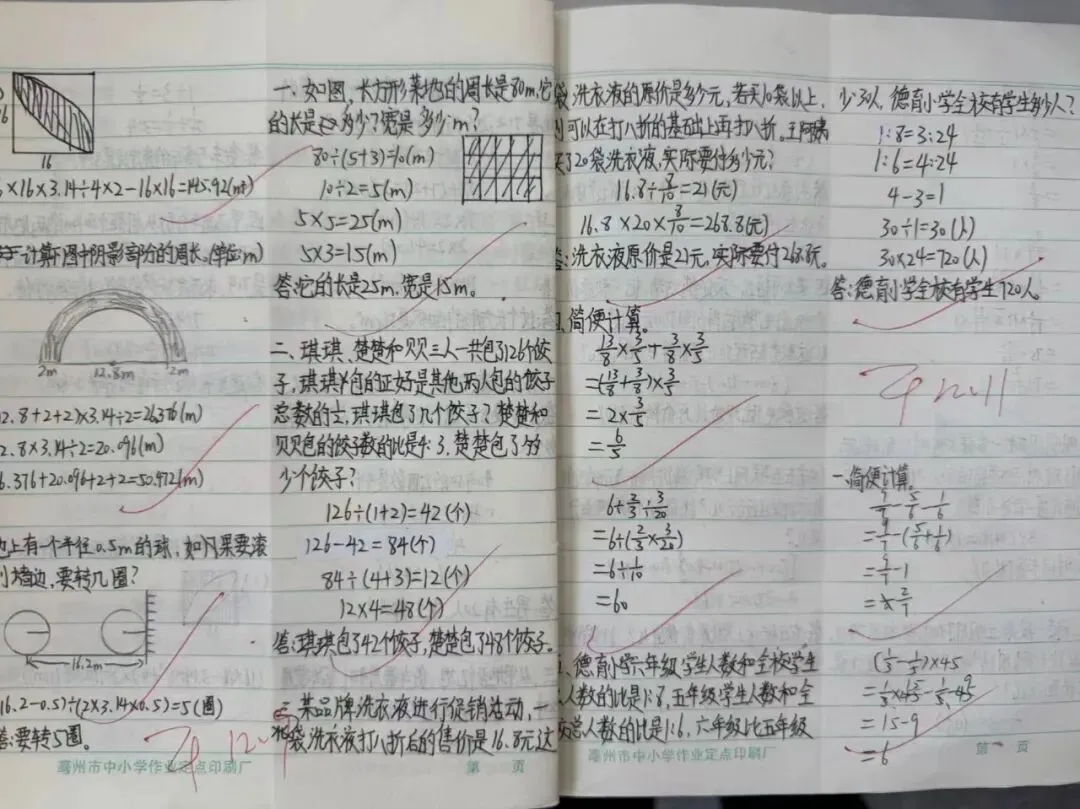 16
16
×16×3.14÷4×2-16×16=145.92(m²)
计算下图中阴影部分的周长。(单位:m)
2m 12.8m 2m
2.8+2+2)×3.14÷2=26.376(m)
2.8×3.14÷2=20.096(m)
6.376+20.096+2+2=50.472(m)
上有一个半径0.5m的球,如果要滚
到墙边,要转几圈?
16.2m
16.2-0.5)÷(2×3.14×0.5)=5(圈)
答:要转5圈。
亳州市中小学作业定点印刷厂
一、如图,长方形菜地的周长是80m,它
的长是多少?宽是多少m?
80÷(5+3)=10(m)
10÷2=5(m)
5×5=25(m)
5×3=15(m)
答:它的长是25m,宽是15m。
二、琪琪、楚楚和贝贝三人一共包了126个饺
子,琪琪包的正好是其他两人包的饺子
总数的,琪琪包了几个饺子?楚楚和
贝贝包的饺子数的比是4:3,楚楚包了多
少个饺子?
126÷(1+2)=42(个)
126-42=84(个)
84÷(4+3)=12(个)
12×4=48(个)
答:琪琪包了42个饺子,楚楚包了48个饺子。
三、某品牌洗衣液进行促销活动,一
袋洗衣液打八折后的售价是16.8元这
第 页
袋洗衣液的原价是多少元,若买10袋以上,
可以在打八折的基础上再打八折。王阿姨
买了20袋洗衣液,实际要付多少元?
16.8÷8/10=21(元)
16.8×20×8/10=268.8(元)
答:洗衣液原价是21元,实际要付268.8元。
简便计算。
13/8×3/5+3/8×3/5
=(13/8+3/8)×3/5
=2×3/5
=6/5
6÷2/3÷3/20
=6÷(2/3×3/20)
=6÷1/10
=60
德育小学六年级学生人数和全校学生
人数的比是1:8,五年级学生人数和全
校总人数的比是1:6,六年级比五年级
亳州市中小学作业定点印刷厂
少30人,德育小学全校有学生多少人?
1:8=3:24
1:6=4:24
4-3=1
30÷1=30(人)
30×24=720(人)
答:德育小学全校有学生720人。
一、简便计算。
9/7-5/6-1/6
=9/7-(5/6+1/6)
=9/7-1
=2/7
(1/3-1/5)×45
=1/3×45-1/5×45
=15-9
=6
第 页